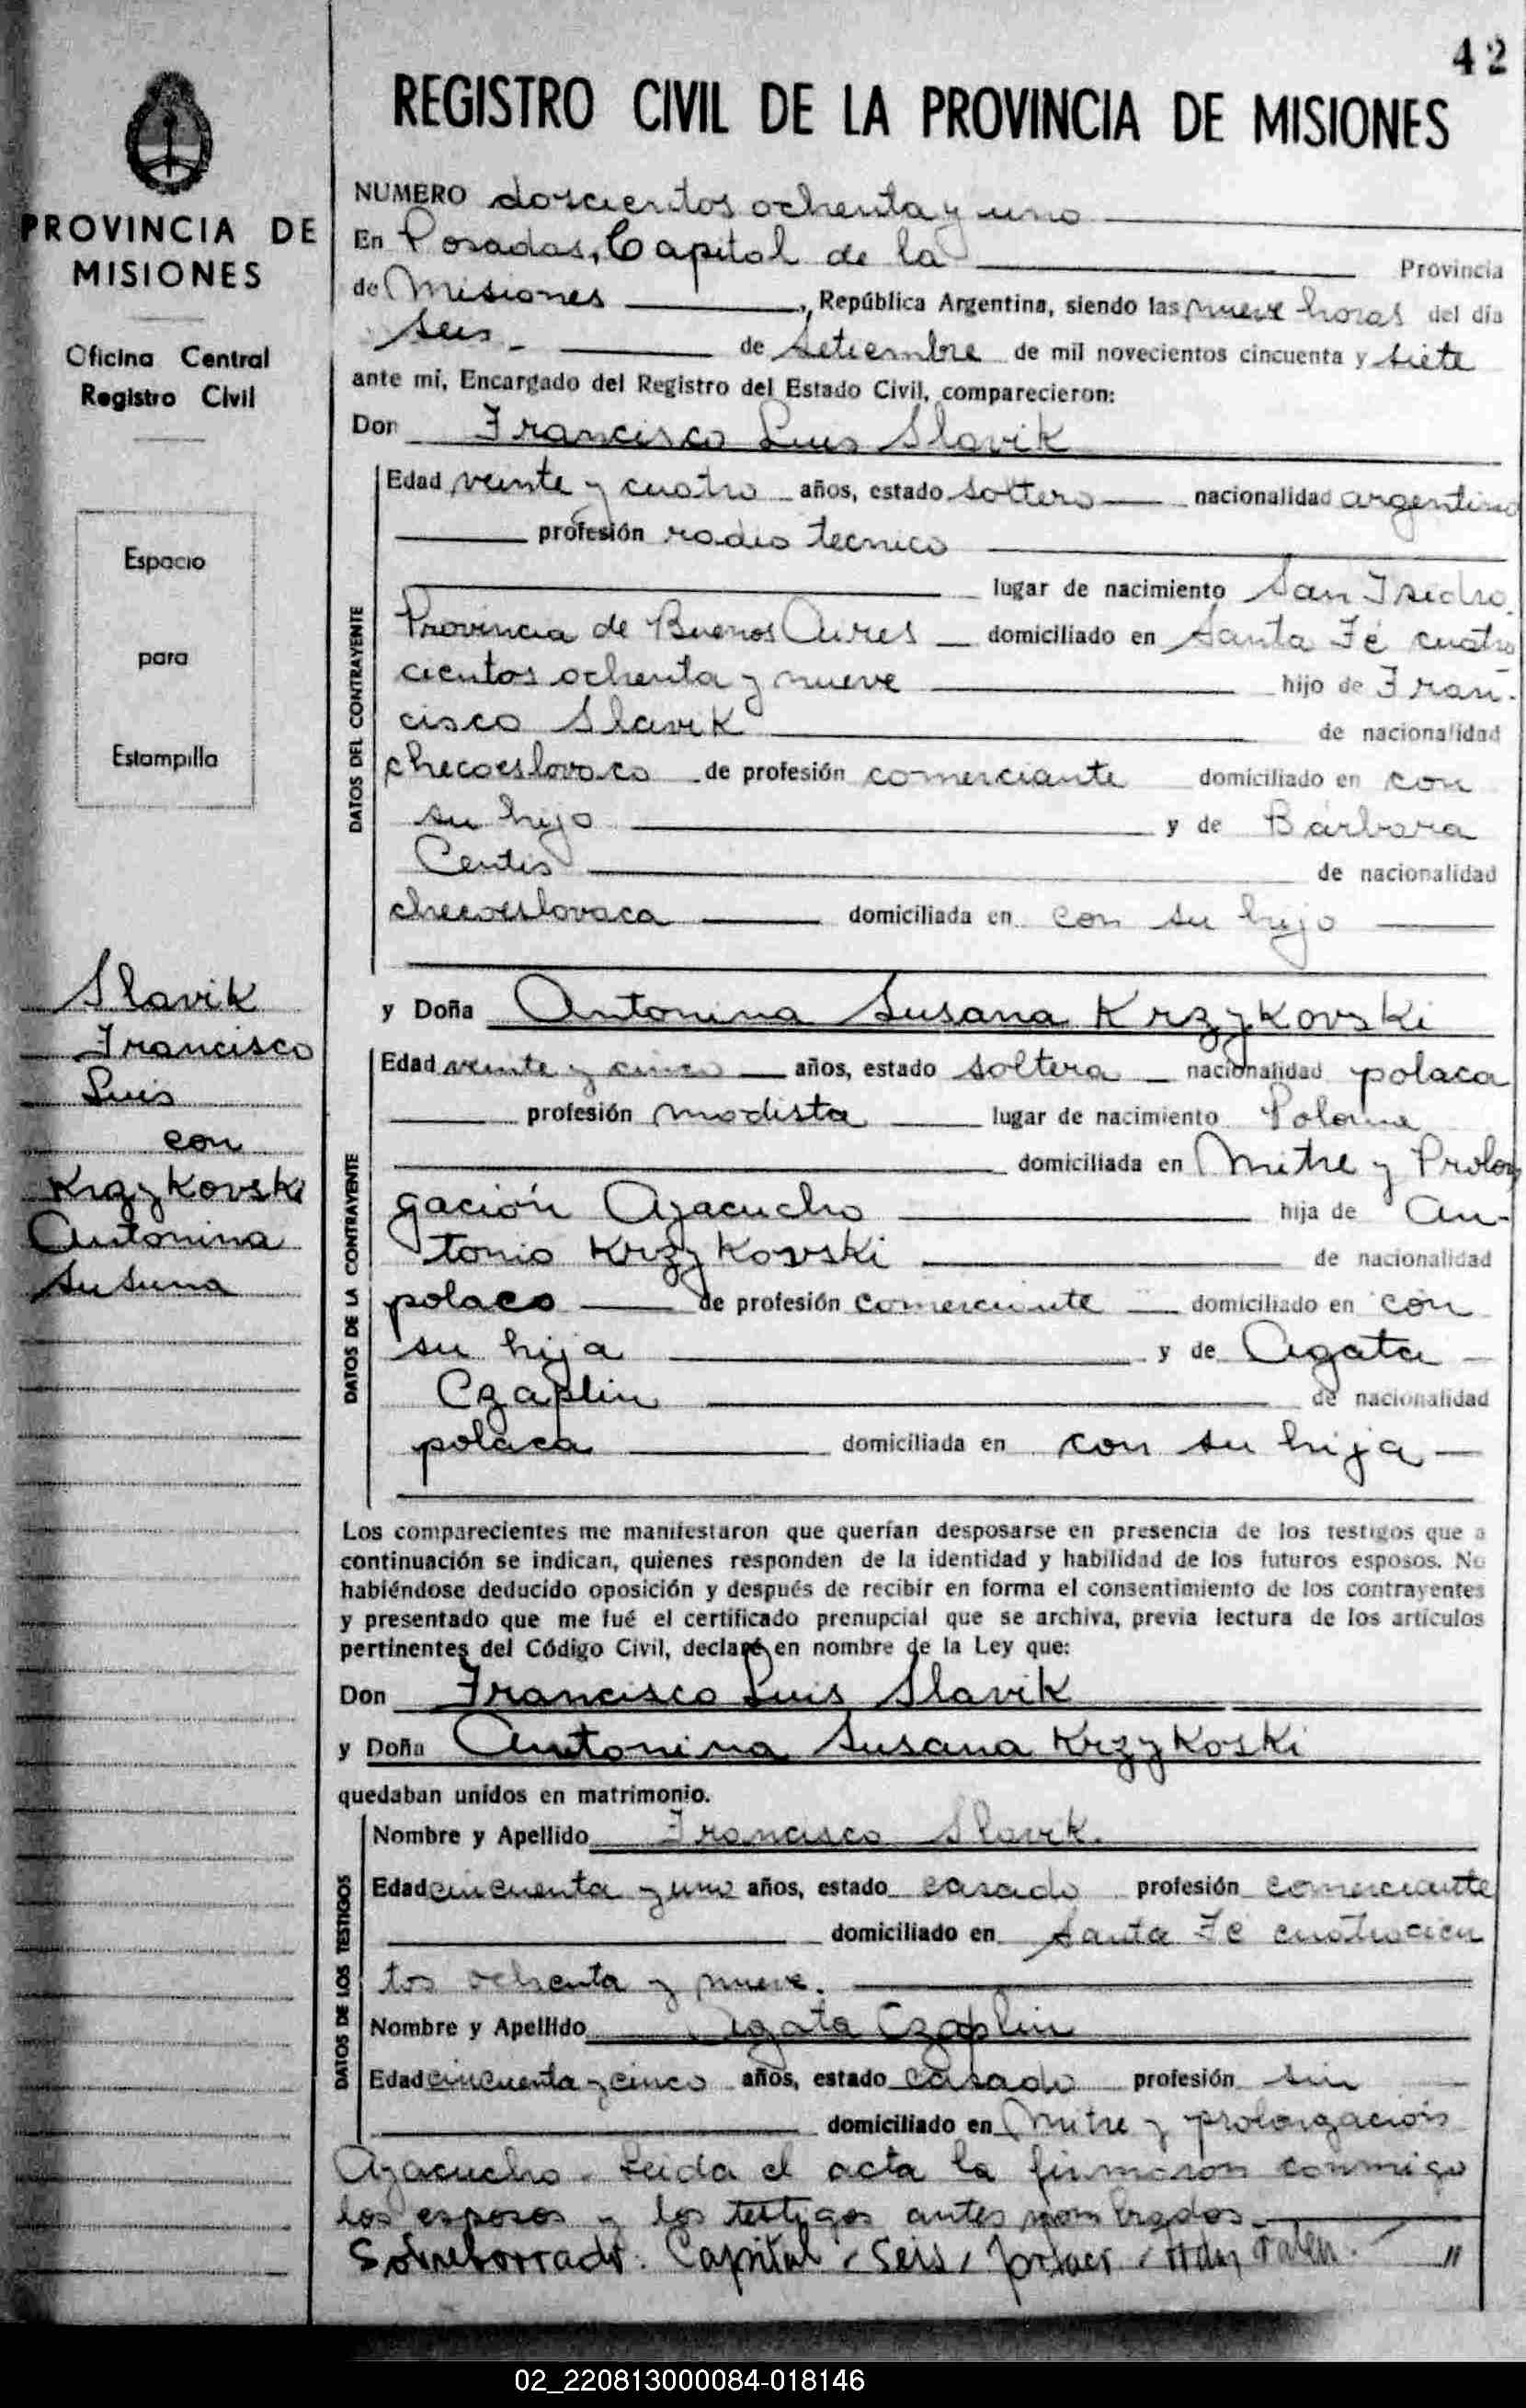 42
REGISTRO CIVIL DE LA PROVINCIA DE MISIONES
PROVINCIA DE
MISIONES
Oficina Central
Registro Civil
Espacio
para
Estampilla
Slavik
Francisco
Luis
con
Krzykovski
Antonina
Susana
NUMERO doscientos ochenta y uno
En Posadas, Capital de la Provincia
de Misiones, República Argentina, siendo las nueve horas del día
seis de Setiembre de mil novecientos cincuenta y siete
ante mí, Encargado del Registro del Estado Civil, comparecieron:
Don Francisco Luis Slavik
DATOS DEL CONTRAYENTE
Edad veinte y cuatro años, estado soltero nacionalidad argentino
profesión radio tecnico
lugar de nacimiento San Isidro
Provincia de Buenos Aires domiciliado en Santa Fé cuatro
cientos ochenta y nueve hijo de Fran-
cisco Slavik de nacionalidad
checoeslovaco de profesión comerciante domiciliado en con
su hijo y de Bárbara
Centis de nacionalidad
checoeslovaca domiciliada en con su hijo
y Doña Antonina Susana Krzykovski
DATOS DE LA CONTRAYENTE
Edad veinte y cinco años, estado soltera nacionalidad polaca
profesión modista lugar de nacimiento Polonia
domiciliada en Mitre y Prolon
gación Ayacucho hija de An-
tonio Krzykovski de nacionalidad
polaco de profesión comerciante domiciliado en con
su hija y de Agata
Czaplin de nacionalidad
polaca domiciliada en con su hija
Los comparecientes me manifestaron que querían desposarse en presencia de los testigos que a
continuación se indican, quienes responden de la identidad y habilidad de los futuros esposos. No
habiéndose deducido oposición y después de recibir en forma el consentimiento de los contrayentes
y presentado que me fué el certificado prenupcial que se archiva, previa lectura de los artículos
pertinentes del Código Civil, declaré en nombre de la Ley que:
Don Francisco Luis Slavik
y Doña Antonina Susana Krzykoski
quedaban unidos en matrimonio.
DATOS DE LOS TESTIGOS
Nombre y Apellido Francisco Slavik.
Edad cincuenta y uno años, estado casado profesión comerciante
domiciliado en Santa Fé cuatrocien
tos ochenta y nueve.
Nombre y Apellido Agata Czaplin
Edad cincuenta y cinco años, estado casado profesión sin
domiciliado en Mitre y prolongación
Ayacucho. Leida el acta la firmaron conmigo
los esposos y los testigos antes nombrados.
Sobreborrado: Capital, Seis,
02_220813000084-018146